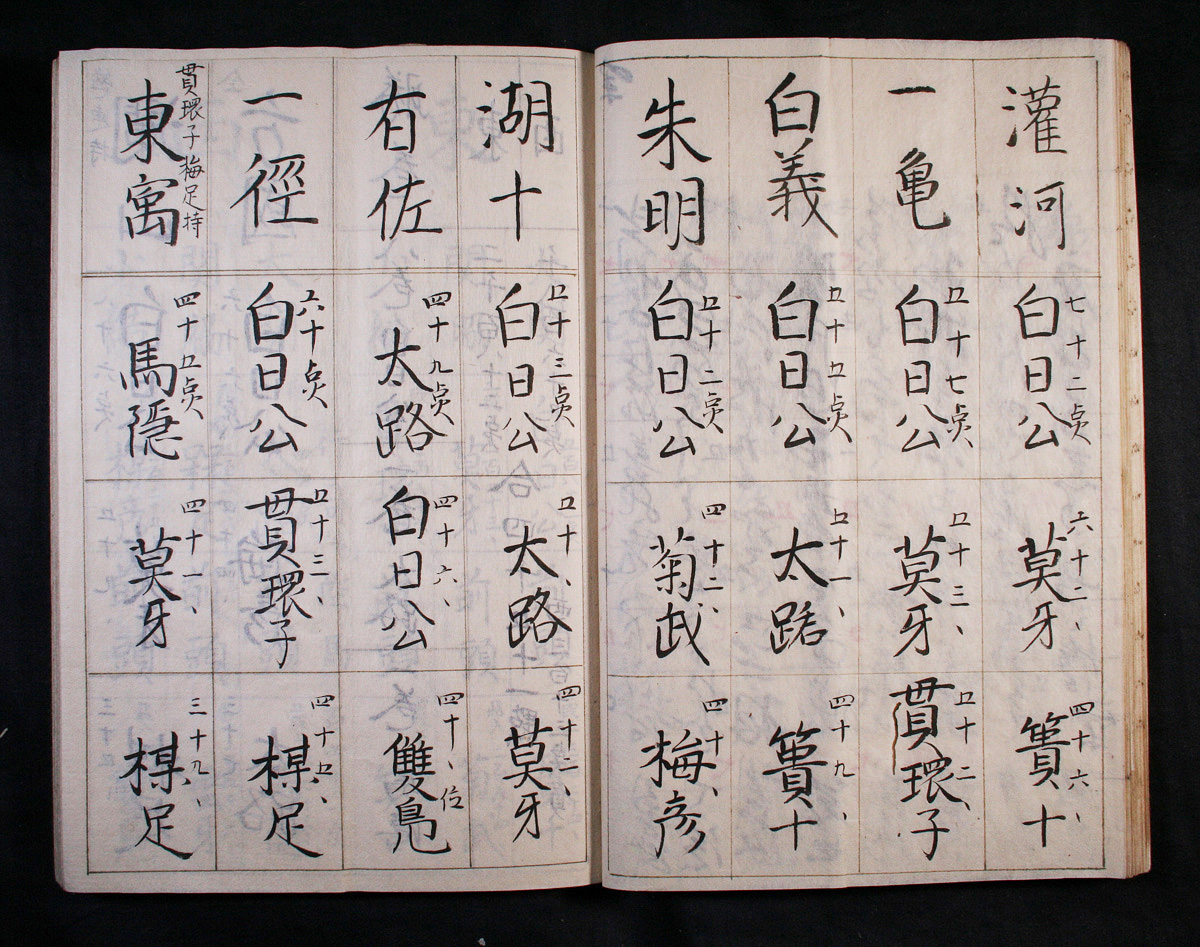 灌河
七十二点
白日公
六十二、
莫牙
四十六、
簣十
一亀
五十七点
白日公
五十三、
莫牙
五十二、
貫環子
白義
五十五点
白日公
五十一、
太路
四十九、
簣十
朱明
五十二点
白日公
四十二、
菊武
四十、
梅彦
湖十
五十三点
白日公
五十、
太路
四十二、
莫牙
有佐
四十九点
太路
四十六、
白日公
四十、位
雙鳬
一徑
六十点
白日公
五十三、
貫環子
四十五、
楳足
貫環子梅足持
東寓
四十五点
馬隠
四十一、
莫牙
三十九、
楳足